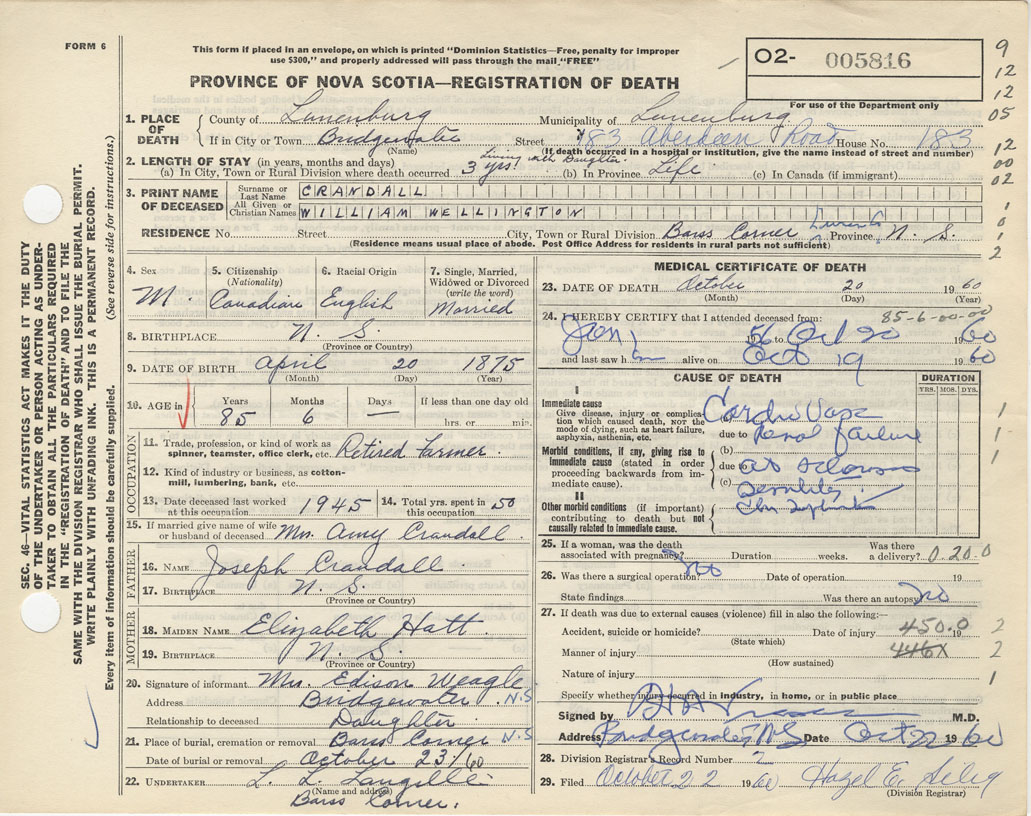 FORM 6
This form if placed in an envelope, on which is printed "Dominion Statistics—Free, penalty for improper
use $300," and properly addressed will pass through the mail "FREE"
PROVINCE OF NOVA SCOTIA—REGISTRATION OF DEATH
O2- 005816
For use of the Department only
9
12
12
05
12
00
02
1
0
1
2
1. PLACE OF DEATH
County of Lunenburg Municipality of Lunenburg
If in City or Town Bridgewater Street 183 Aberdeen Road House No. 183
(Name) (If death occurred in a hospital or institution, give the name instead of street and number)
2. LENGTH OF STAY (in years, months and days) Living with Daughter.
(a) In City, Town or Rural Division where death occurred 3 yrs. (b) In Province Life (c) In Canada (if immigrant)
3. PRINT NAME OF DECEASED
Surname or Last Name CRANDALL
All Given or Christian Names WILLIAM WELLINGTON
RESIDENCE No. Street City, Town or Rural Division Barss Corner Province N. S.
(Residence means usual place of abode. Post Office Address for residents in rural parts not sufficient)
4. Sex M.
5. Citizenship (Nationality) Canadian
6. Racial Origin English
7. Single, Married, Widowed or Divorced (write the word) Married
8. BIRTHPLACE N. S.
(Province or Country)
9. DATE OF BIRTH April 20 1875
(Month) (Day) (Year)
10. AGE in Years 85 Months 6 Days — If less than one day old
hrs. or min.
OCCUPATION
11. Trade, profession, or kind of work as
spinner, teamster, office clerk, etc. Retired Farmer.
12. Kind of industry or business, as cotton-
mill, lumbering, bank, etc.
13. Date deceased last worked at this occupation 1945 14. Total yrs. spent in this occupation 50
15. If married give name of wife or husband of deceased Mrs. Amy Crandall.
FATHER
16. NAME Joseph Crandall.
17. BIRTHPLACE N. S.
(Province or Country)
MOTHER
18. MAIDEN NAME Elizabeth Hatt.
19. BIRTHPLACE N. S.
(Province or Country)
20. Signature of informant Mrs. Edison Weagle
Address Bridgewater. N.S
Relationship to deceased Daughter.
21. Place of burial, cremation or removal Barss Corner N.S.
Date of burial or removal October 23/60
22. UNDERTAKER L. L. Langille
(Name and address)
Barss Corner.
MEDICAL CERTIFICATE OF DEATH
23. DATE OF DEATH October 20 1960
(Month) (Day) (Year)
85-6-00-00
24. I HEREBY CERTIFY that I attended deceased from:
Jan 1956 to Oct 20 1960
and last saw him alive on Oct 19 1960
CAUSE OF DEATH DURATION
YRS. MOS. DYS.
I
Immediate cause
Give disease, injury or complica-
tion which caused death, NOT the
mode of dying, such as heart failure,
asphyxia, asthenia, etc.
Cardio Vasc
due to Renal failure
Morbid conditions, if any, giving rise to
immediate cause (stated in order
proceeding backwards from im-
mediate cause).
(b)
due to
(c)
II
Other morbid conditions (if important)
contributing to death but not
causally related to immediate cause.
1
1
1
25. If a woman, was the death
associated with pregnancy? Duration weeks. Was there a delivery? 0.20.0
26. Was there a surgical operation? No Date of operation 19
State findings Was there an autopsy? no
27. If death was due to external causes (violence) fill in also the following:—
Accident, suicide or homicide? Date of injury 19 450.0 2
(State which)
Manner of injury 446X 2
(How sustained)
Nature of injury 1
Specify whether injury occurred in industry, in home, or in public place
Signed by M.D.
Address Bridgewater NS Date Oct 22 1960
28. Division Registrar's Record Number 2
29. Filed October 22 1960 Hazel E. Selig
(Division Registrar)
SEC. 46—VITAL STATISTICS ACT MAKES IT THE DUTY
OF THE UNDERTAKER OR PERSON ACTING AS UNDER-
TAKER TO OBTAIN ALL THE PARTICULARS REQUIRED
IN THE "REGISTRATION OF DEATH" AND TO FILE THE
SAME WITH THE DIVISION REGISTRAR WHO SHALL ISSUE THE BURIAL PERMIT.
WRITE PLAINLY WITH UNFADING INK. THIS IS A PERMANENT RECORD.
Every item of information should be carefully supplied. (See reverse side for instructions.)